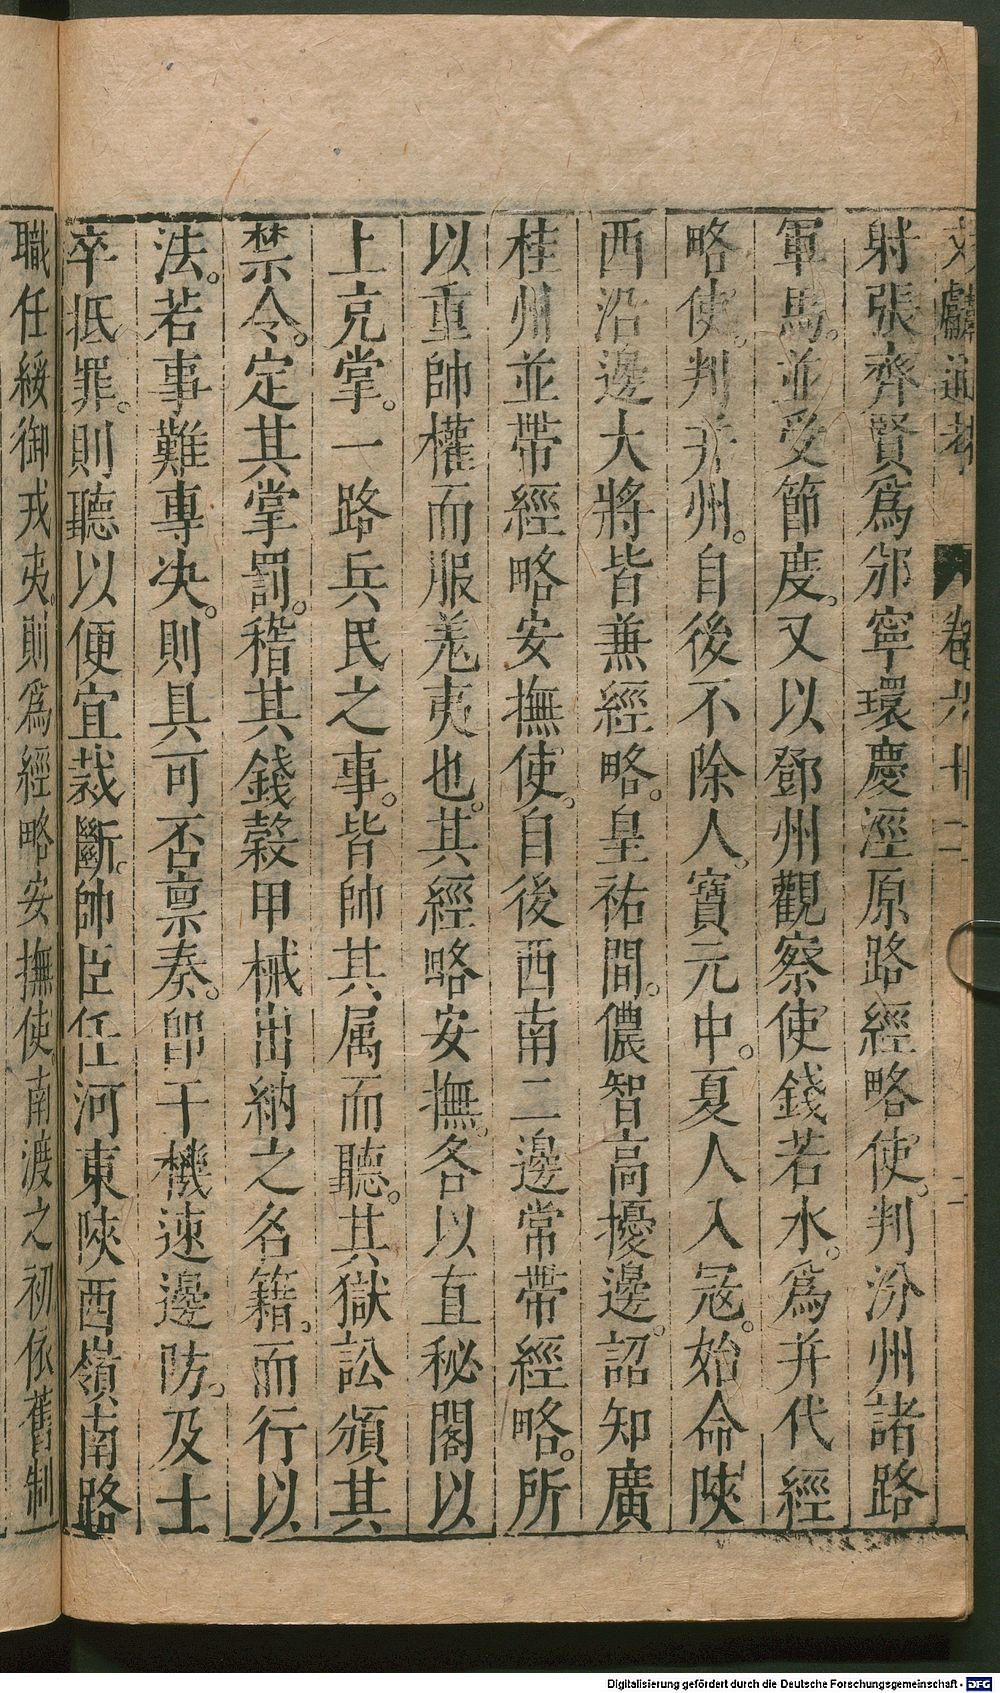 文獻通考　卷六十二　二
射張齊賢爲邠寧環慶涇原路經略使。判汾州諸路
軍馬。並受節度。又以鄧州觀察使錢若水。爲并代經
略使。判并州。自後不除人。寶元中。夏人入寇。始命陝
西沿邊大將皆兼經略。皇祐間。儂智高擾邊。詔知廣
桂州並帶經略安撫使。自後西南二邊常帶經略。所
以重帥權而服羗夷也。其經略安撫。各以直秘閣以
上克掌。一路兵民之事。皆帥其属而聽。其獄訟頒其
禁令。定其掌罰。稽其錢糓甲械出納之名籍。而行以
法。若事難專决。則具可否禀奏。卽干機速邊防。及士
卒抵罪。則聽以便宜裁斷。帥臣任河東陝西嶺南路
職任綏御戎夷。則爲經略安撫使南渡之初依舊制
Digitalisierung gefördert durch die Deutsche Forschungsgemeinschaft - DFG